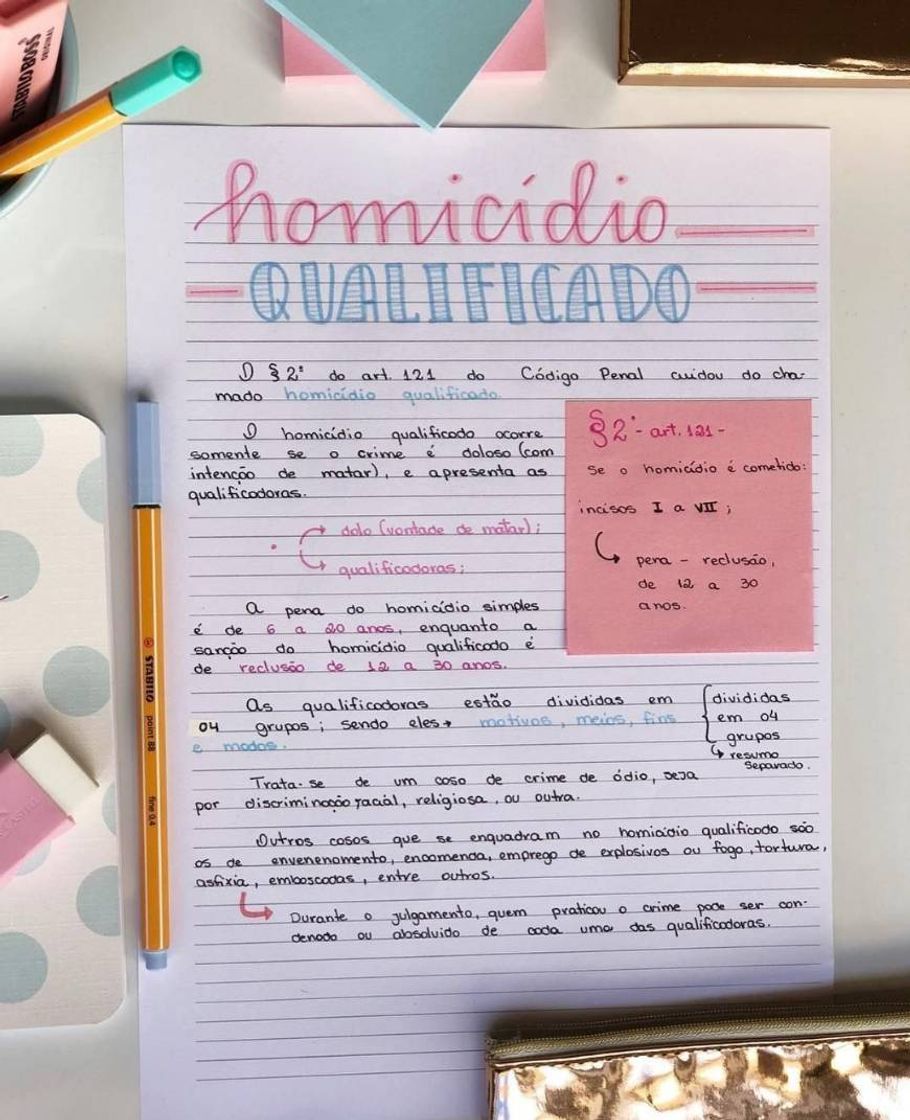 STABILO BOSS
ORIGINAL
homicídio
QUALIFICADO
O §2° do art. 121 do Código Penal cuidou do cha-
mado homicídio qualificado.
O homicídio qualificado ocorre
somente se o crime é doloso (com
intenção de matar), e apresenta as
qualificadoras.
→ dolo (vontade de matar);
→ qualificadoras;
§2°- art. 121 -
Se o homicídio é cometido:
incisos I a VII;
→ pena - reclusão,
de 12 a 30
anos.
A pena do homicídio simples
é de 6 a 20 anos, enquanto a
sanção do homicídio qualificado é
de reclusão de 12 a 30 anos.
As qualificadoras estão divididas em
04 grupos; sendo eles→ motivos, meios, fins
e modos.
divididas
em 04
grupos
→ resumo
separado.
Trata-se de um caso de crime de ódio, seja
por discriminação racial, religiosa, ou outra.
Outros casos que se enquadram no homicídio qualificado são
os de envenenamento, encomenda, emprego de explosivos ou fogo, tortura,
asfixia, emboscadas, entre outros.
→ Durante o julgamento, quem praticou o crime pode ser con-
denado ou absolvido de cada uma das qualificadoras.
STABILO point 88 fine 0,4